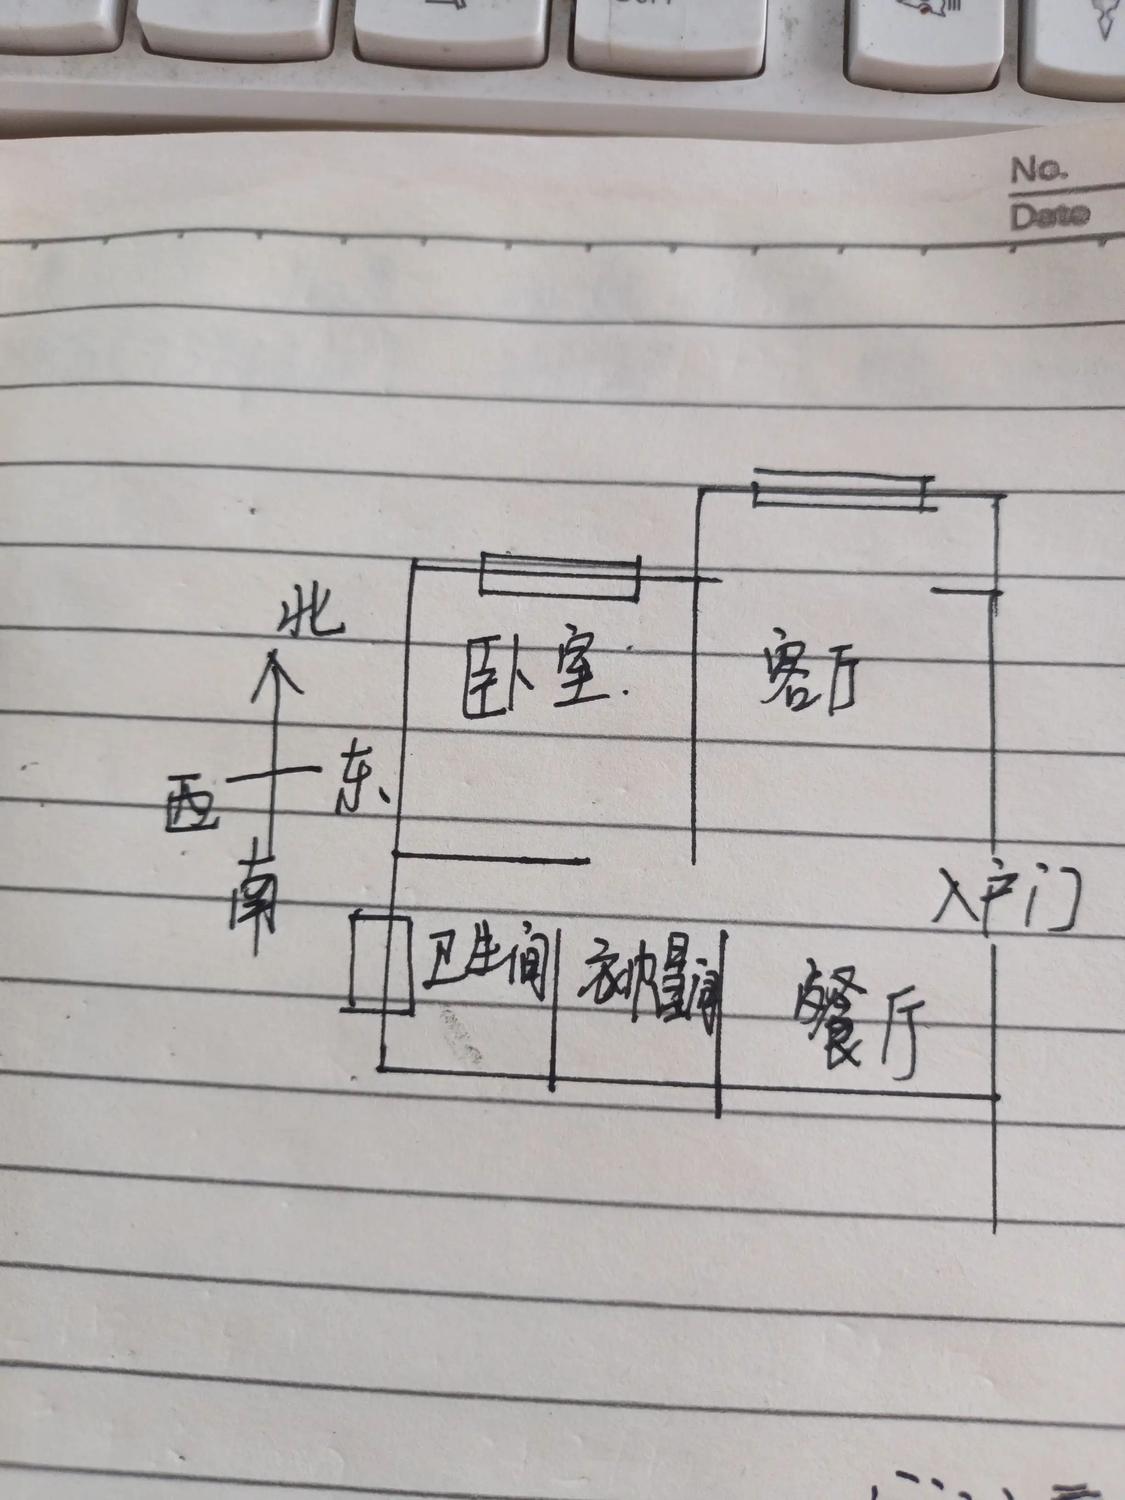 No.
Date
北
卧室
客厅
西
东
南
入户门
卫生间
衣帽间
餐厅